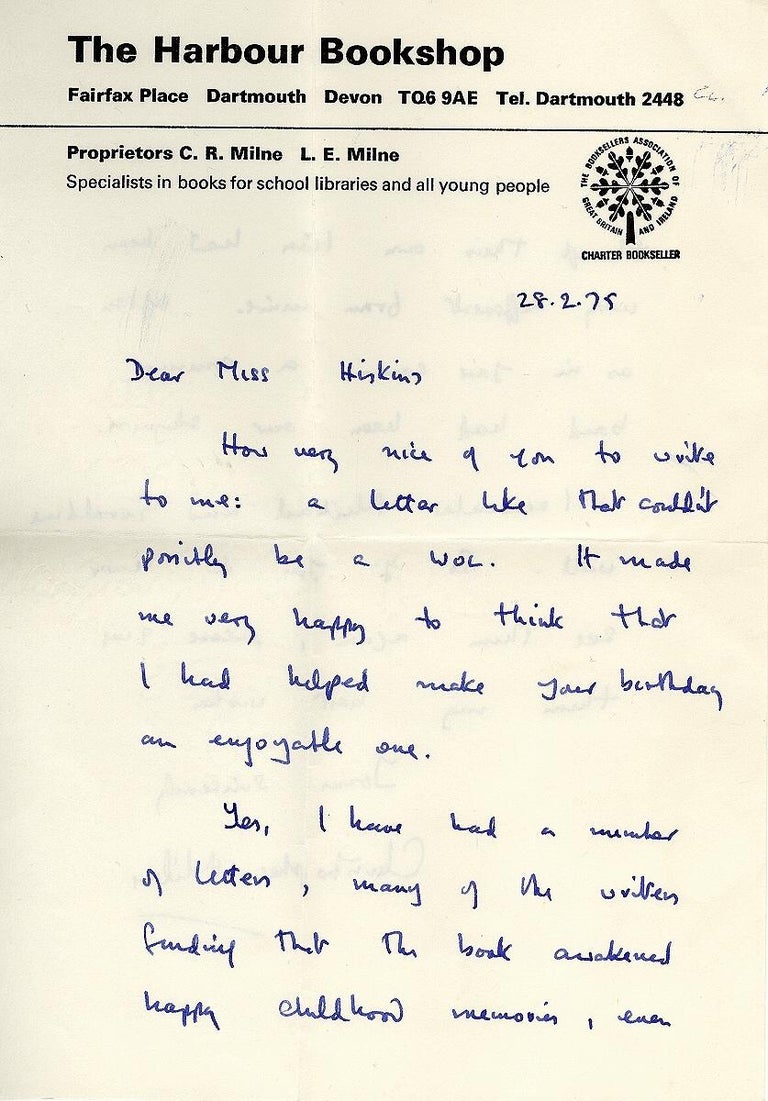 The Harbour Bookshop
Fairfax Place Dartmouth Devon TQ6 9AE Tel. Dartmouth 2448
Proprietors C. R. Milne L. E. Milne
Specialists in books for school libraries and all young people
THE BOOKSELLERS ASSOCIATION OF GREAT BRITAIN AND IRELAND
CHARTER BOOKSELLER
28.2.75
Dear Miss Hiskins
How very nice of you to write
to me: a letter like that couldn't
possibly be a . It made
me very happy to think that
I had helped make your birthday
an enjoyable one.
Yes, I have had a number
of letters, many of the writers
finding that the book awakened
happy childhood memories, even